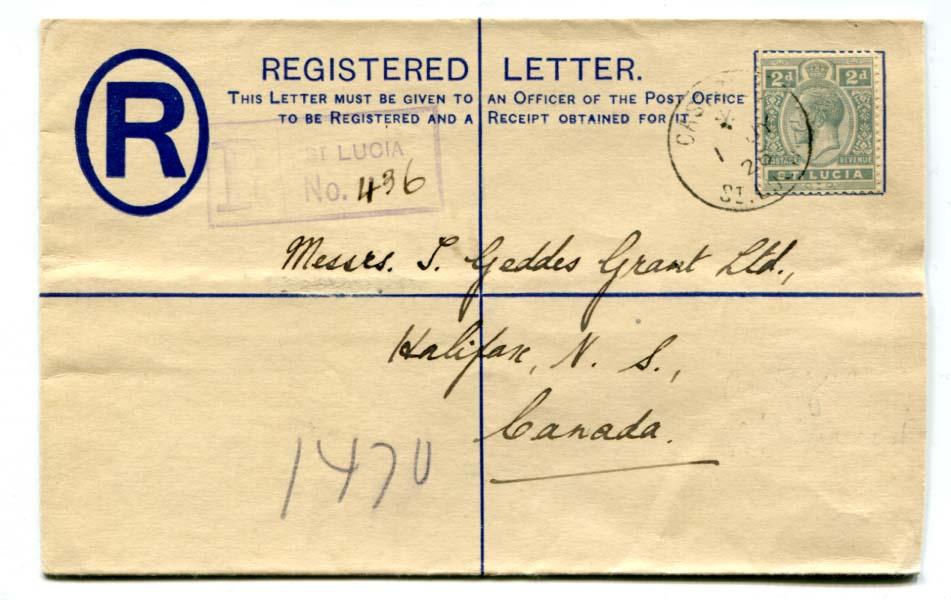 REGISTERED LETTER.
THIS LETTER MUST BE GIVEN TO AN OFFICER OF THE POST OFFICE
TO BE REGISTERED AND A RECEIPT OBTAINED FOR IT
R
R
ST LUCIA
No. 436
2d 2d
POSTAGE REVENUE
ST. LUCIA
ST. LU
Messrs. T. Geddes Grant Ltd.,
Halifax, N. S.,
Canada.
1470